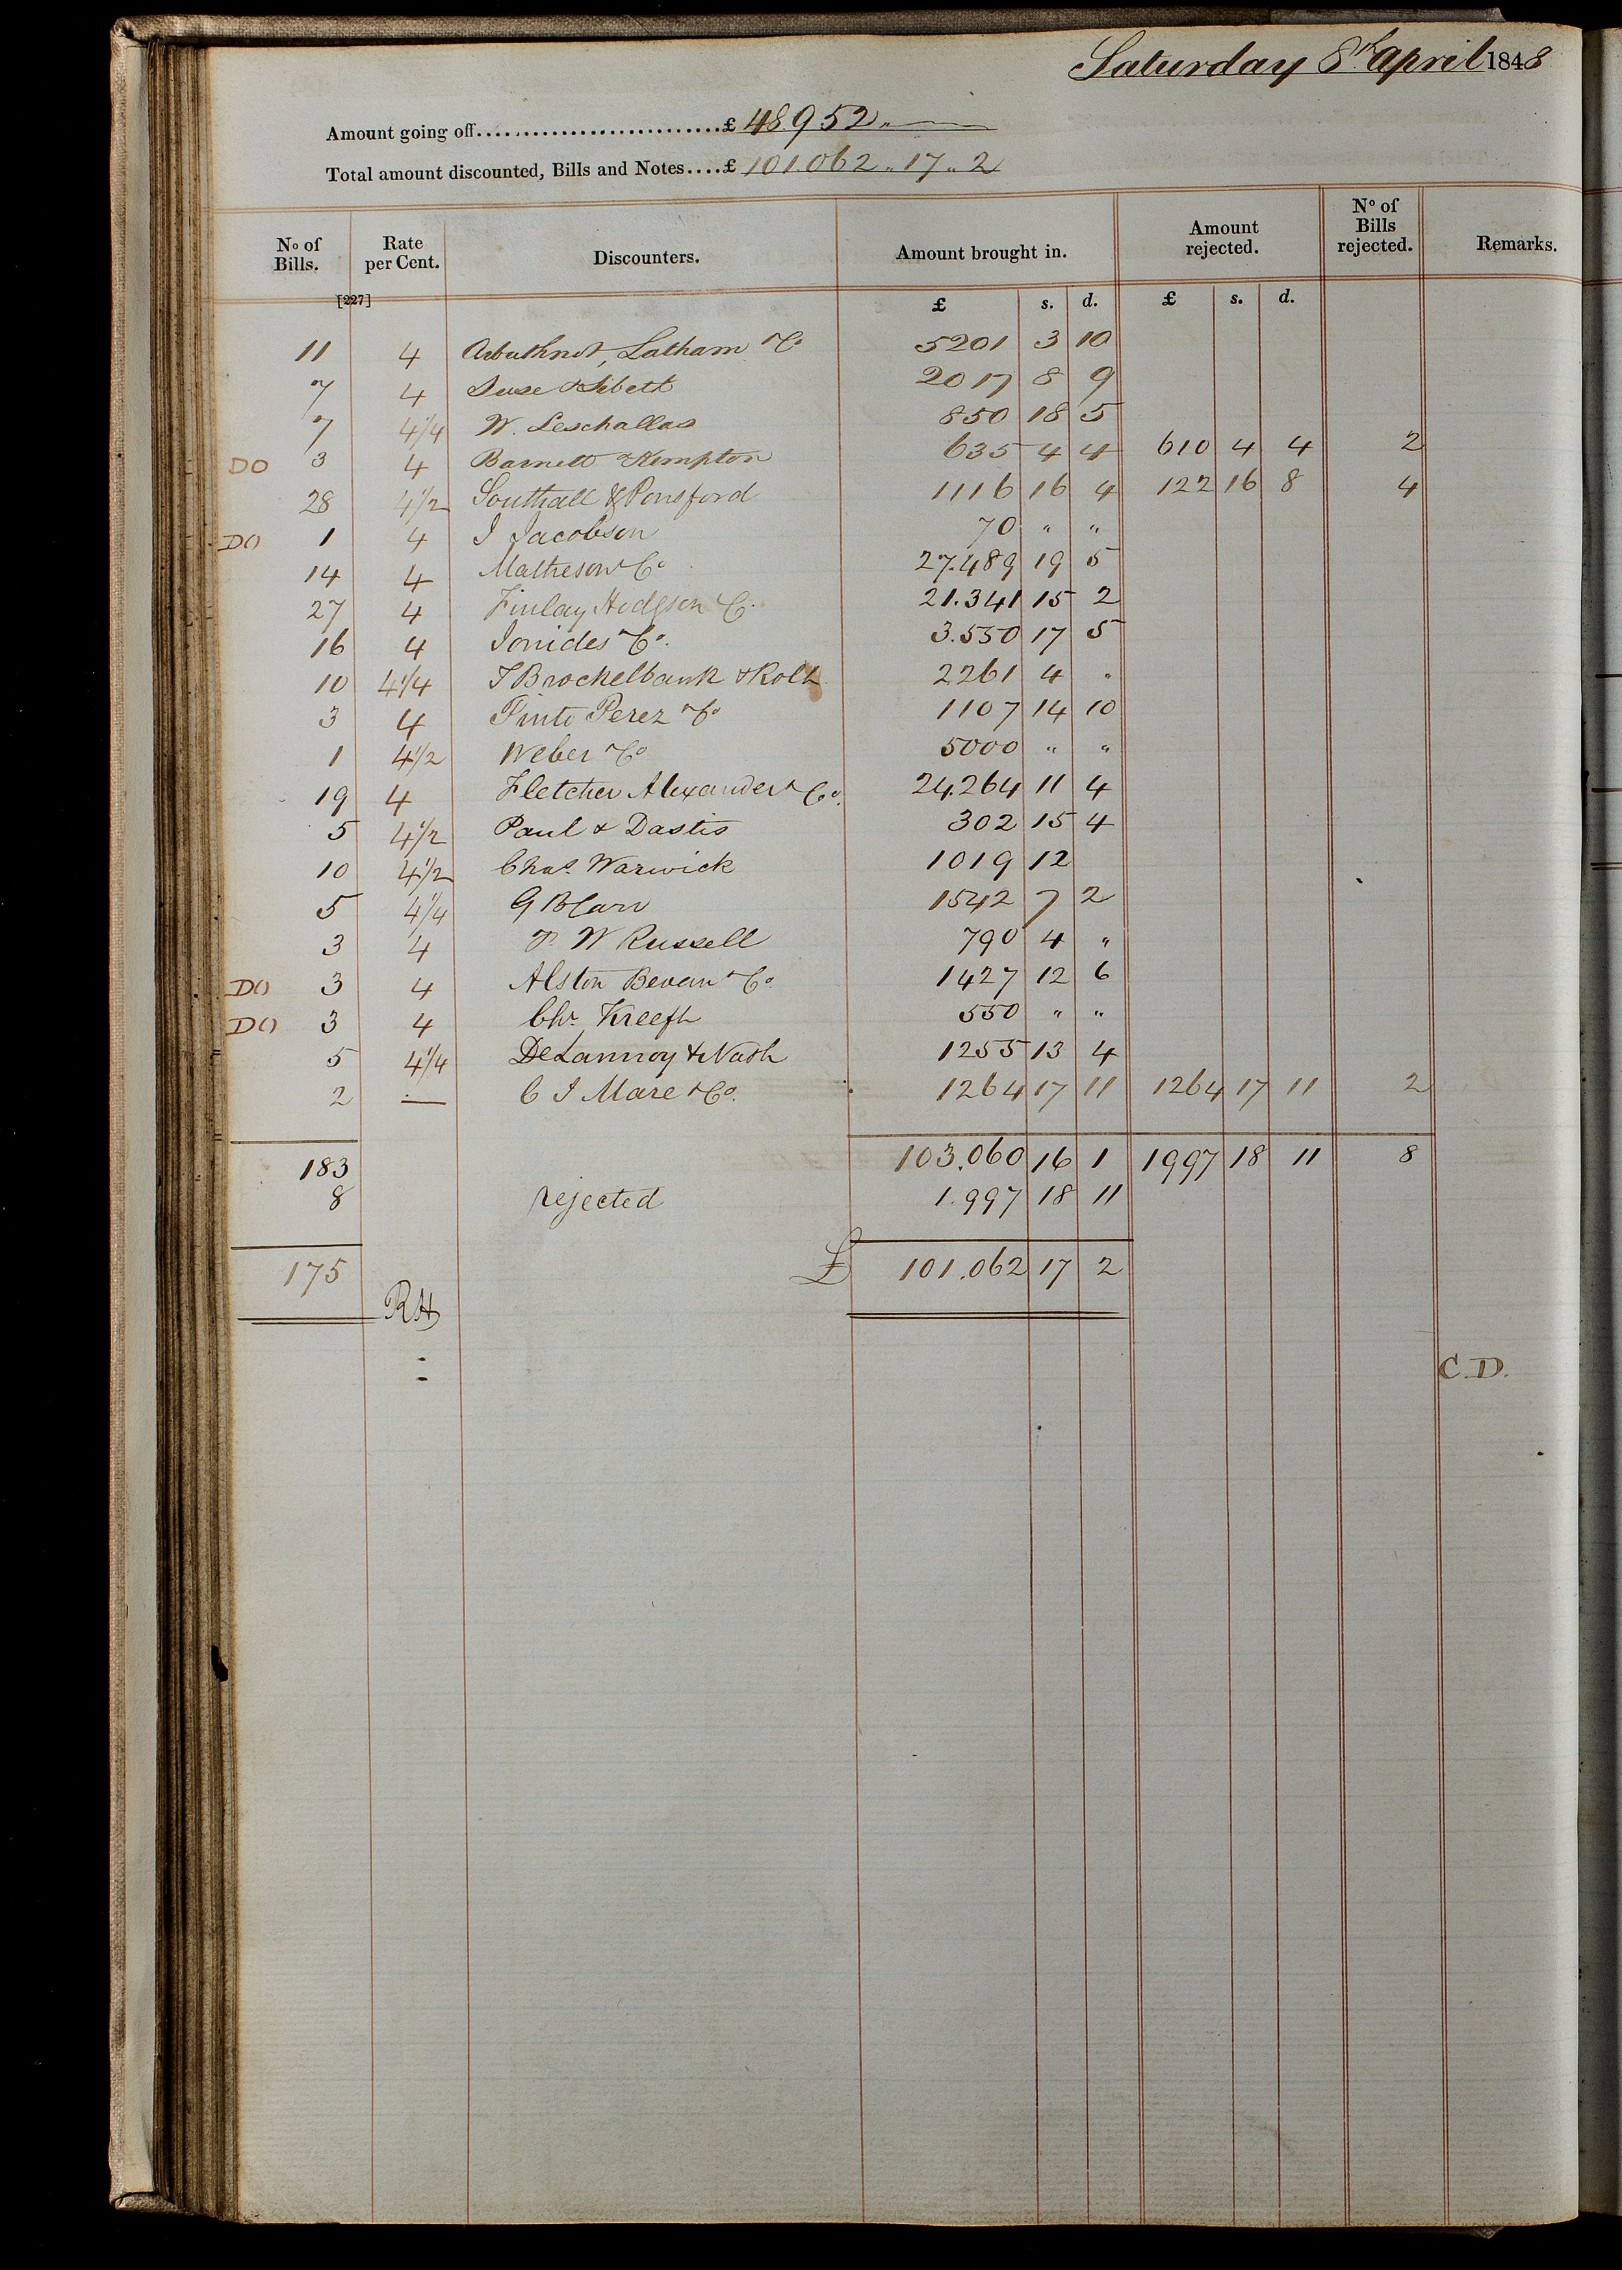 Saturday 8th April 1848
Amount going off...........................£ 48952 "
Total amount discounted, Bills and Notes....£ 101.062 " 17 " 2
No of Bills. Rate per Cent. Discounters. Amount brought in. Amount rejected. No of Bills rejected. Remarks.
[227] £ s. d. £ s. d.
11 4 Arbuthnot, Latham & Co 5201 3 10
7 4 Suse & Sibeth 2017 8 9
7 4 1/4 W. Leschallas 850 18 5
DO 3 4 Barnett & Kempton 635 4 4 610 4 4 2
28 4 1/2 Southall & Ponsford 1116 16 4 122 16 8 4
DO 1 4 I Jacobson 70 " "
14 4 Matheson & Co 27.489 19 5
27 4 Finlay Hodgson & C. 21.341 15 2
16 4 Ionides & Co. 3.550 17 5
10 4 1/4 T Brockelbank & Rolls 2261 4 "
3 4 Pinto Perez & Co 1107 14 10
1 4 1/2 Weber & Co 5000 " "
19 4 Fletcher Alexander & Co. 24.264 11 4
5 4 1/2 Paul & Dastis 302 15 4
10 4 1/2 Chas. Warwick 1019 12
5 4 1/4 G B Carr 1542 7 2
3 4 W Russell 790 4 "
DO 3 4 Alston Bevan & Co. 1427 12 6
DO 3 4 Chr. Kreeft 550 " "
5 4 1/4 DeLannoy & Nash 1255 13 4
2 — C J Mare & Co. 1264 17 11 1264 17 11 2
183 103.060 16 1 1997 18 11 8
8 rejected 1.997 18 11
175 £ 101.062 17 2
RH
C.D.